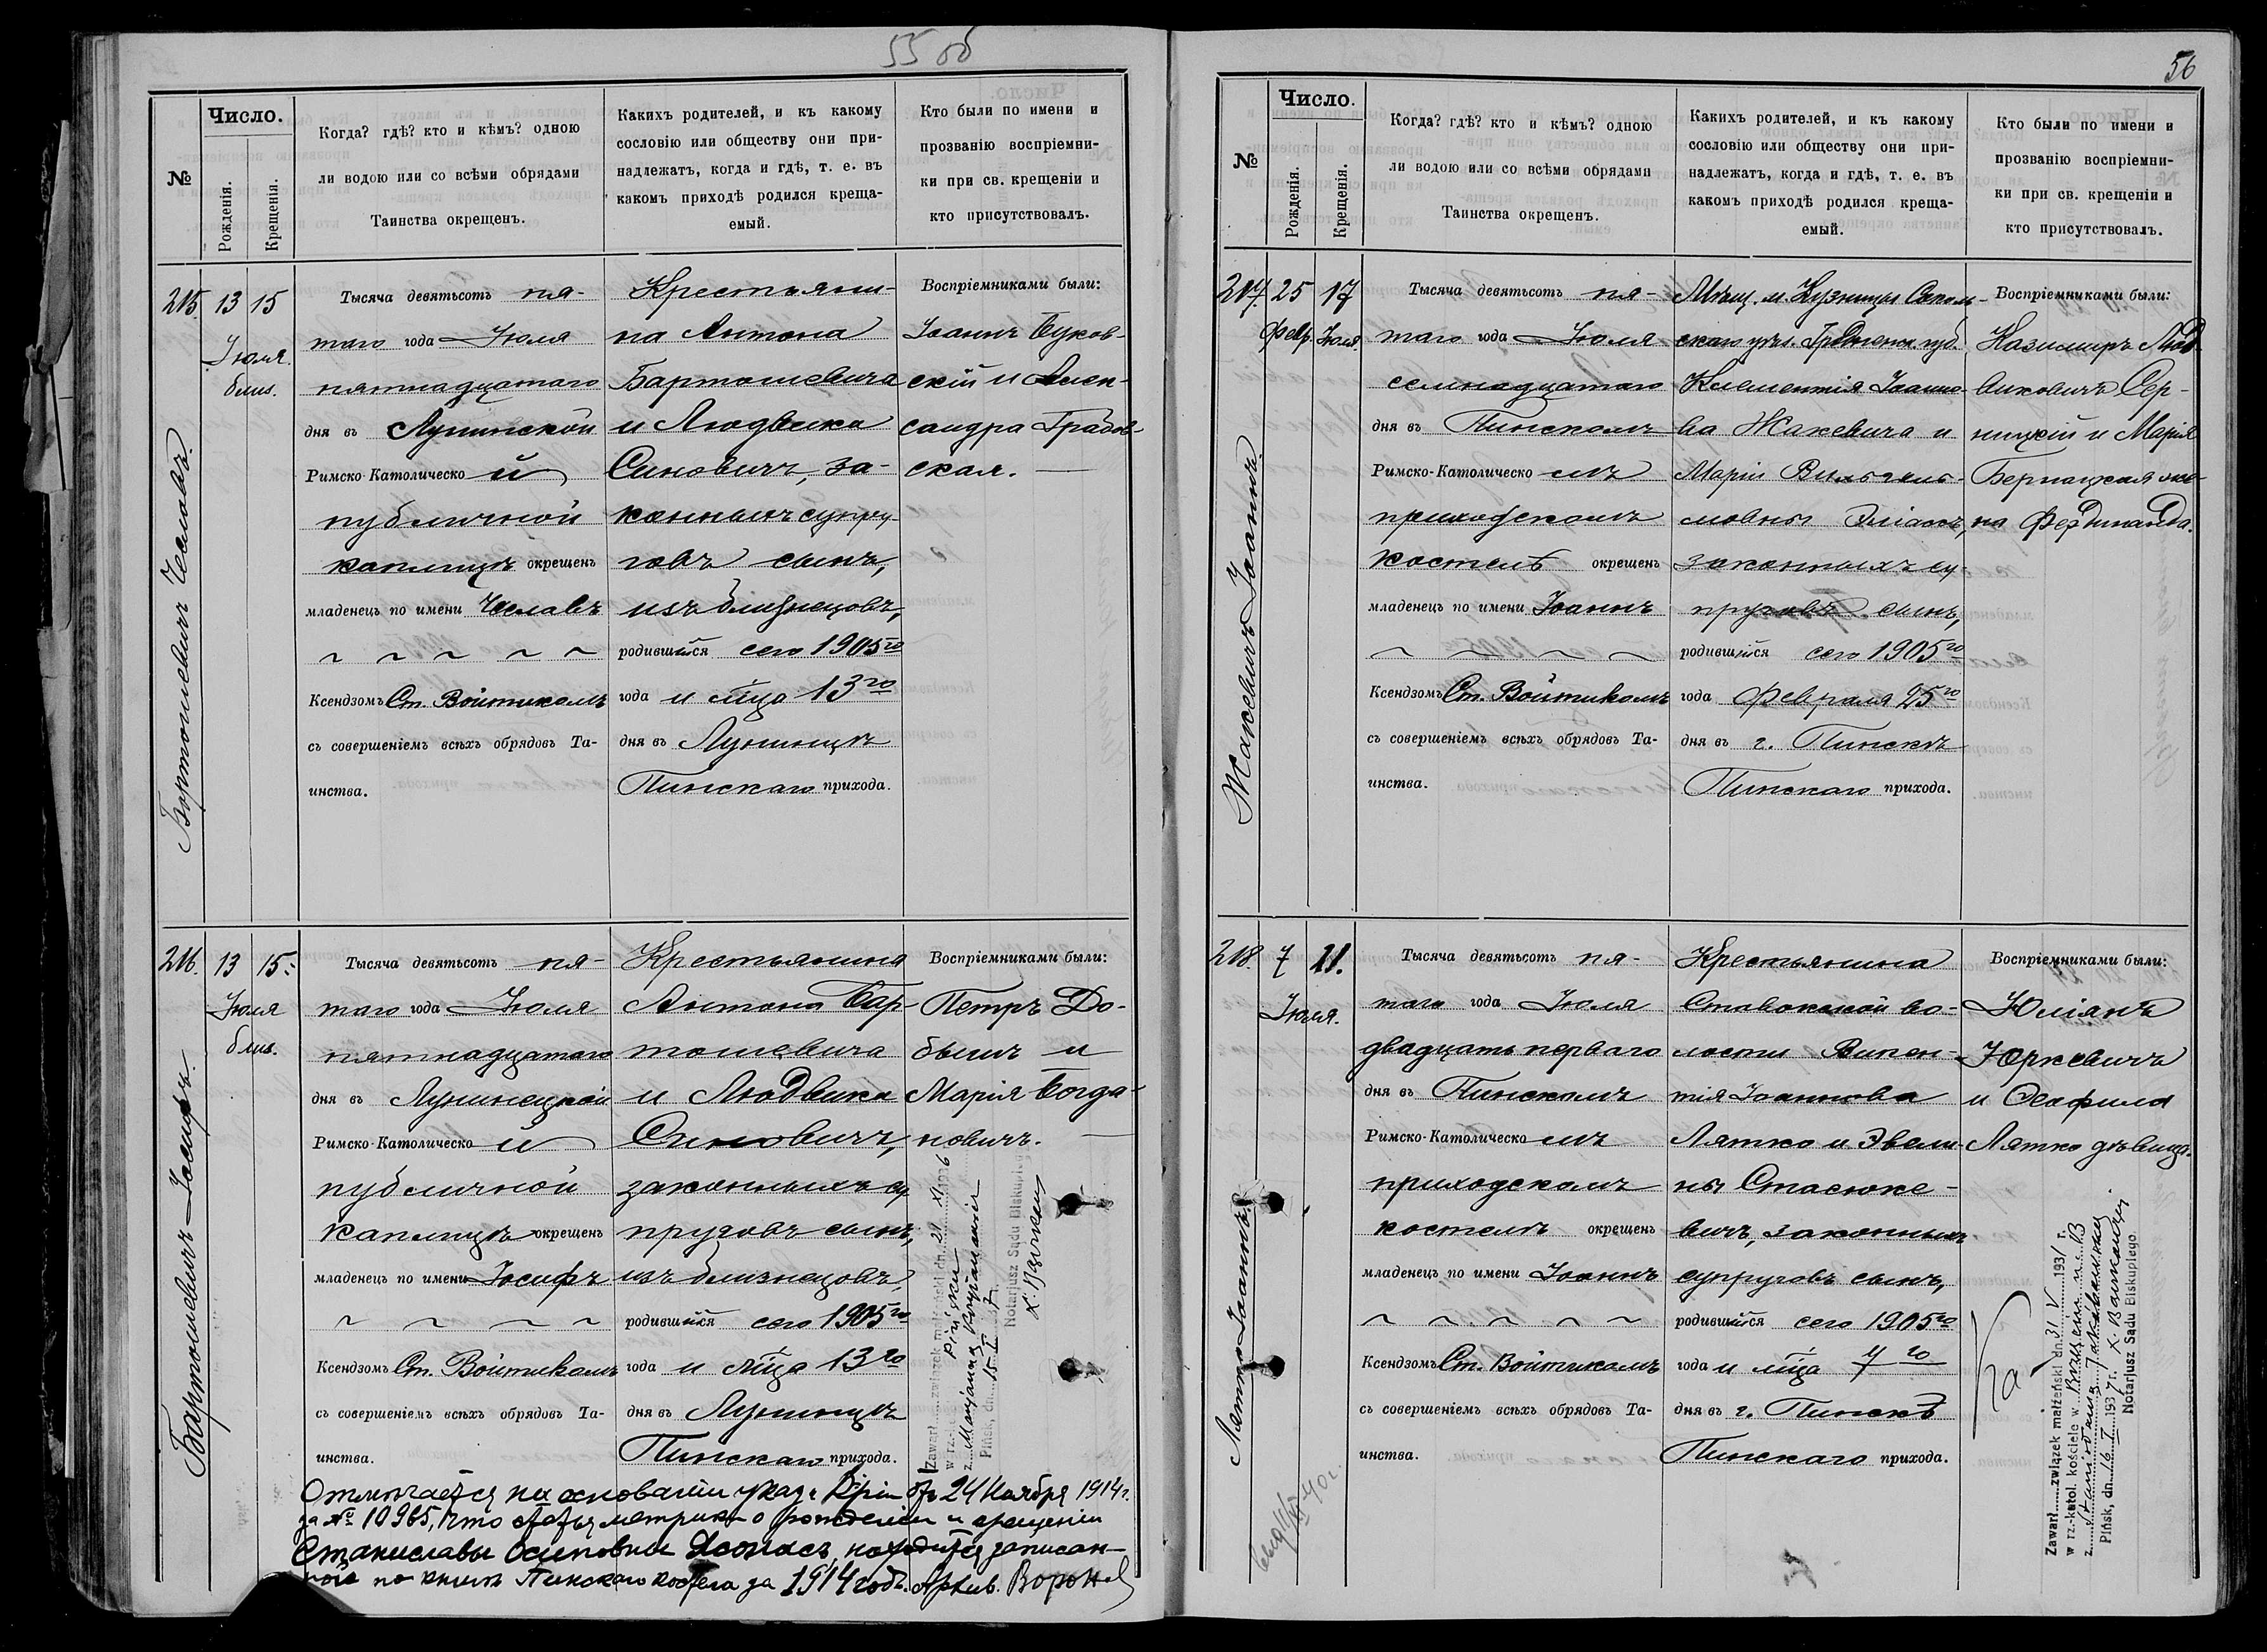 55 об
Число.
№
Рожденія.
Крещенія.
Когда? гдѣ? кто и кѣмъ? одною
ли водою или со всѣми обрядами
Таинства окрещенъ.
Какихъ родителей, и къ какому
сословію или обществу они при-
надлежатъ, когда и гдѣ, т. е. въ
какомъ приходѣ родился креща-
емый.
Кто были по имени и
прозванію воспріемни-
ки при св. крещеніи и
кто присутствовалъ.
215. 13 15
Іюля.
близ.
Бортошевичъ Чеславъ.
Тысяча девятьсотъ пя-
таго года Іюля
пятнадцатаго
дня въ Лунинской
Римско-Католическо й
публичной
каплицѣ окрещенъ
младенецъ по имени Чеславъ
Ксендзомъ Ст. Войтикомъ
съ совершеніемъ всѣхъ обрядовъ Та-
инства.
Крестьяни-
на Антона
Бартошевича
и Людвика
Синовичъ, за-
конныхъ супру-
говъ сынъ,
изъ близнецовъ,
родившійся сего 1905го
года и мѣца 13го
дня въ Лунинцѣ
Пинскаго прихода.
Воспріемниками были:
Іоаннъ Буков-
скій и Алек-
сандра Градов-
ская.
216. 13 15.
Іюля
близ.
Бартошевичъ Іосифъ.
Тысяча девятьсотъ пя-
таго года Іюля
пятнадцатаго
дня въ Лунинецкой
Римско-Католическо й
публичной
каплицѣ окрещенъ
младенецъ по имени Іосифъ
Ксендзомъ Ст. Войтикомъ
съ совершеніемъ всѣхъ обрядовъ Та-
инства.
Крестьянина
Антона Бар-
тошевича
и Людвика
Синовичъ,
законныхъ су-
пруговъ сынъ,
изъ близнецовъ,
родившійся сего 1905го
года и мѣца 13го
дня въ Лунинцѣ
Пинскаго прихода.
Воспріемниками были:
Петръ До-
бышъ и
Марія Богда-
новичъ.
Zawarł związek małżeński dn. 28 XI 1926
w rz.
Pińsku
z Marjanną
Pińsk, dn. 15 I 37 r.
Notarjusz Sądu Biskupiego
Отмѣчается на основаніи указа отъ 24 Ноября 1914 г.
за № 10965, что метрика о рожденіи и крещеніи
Станиславы Осиповны находится записан-
ною по книгѣ Пинскаго костела за 1914 годъ. Архив.
56
Число.
№
Рожденія.
Крещенія.
Когда? гдѣ? кто и кѣмъ? одною
ли водою или со всѣми обрядами
Таинства окрещенъ.
Какихъ родителей, и къ какому
сословію или обществу они при-
надлежатъ, когда и гдѣ, т. е. въ
какомъ приходѣ родился креща-
емый.
Кто были по имени и
прозванію воспріемни-
ки при св. крещеніи и
кто присутствовалъ.
217. 25 17
Февр. Іюля.
Жакевичъ Іоаннъ.
Тысяча девятьсотъ пя-
таго года Іюля
семнадцатаго
дня въ Пинскомъ
Римско-Католическо мъ
приходскомъ
костелѣ окрещенъ
младенецъ по имени Іоаннъ
Ксендзомъ Ст. Войтикомъ
съ совершеніемъ всѣхъ обрядовъ Та-
инства.
Мѣщ. м. Кузницы Сокол-
скаго уѣз. Гродненск. губ.
Климентія Іоанно-
ва Жакевича и
Маріи Вильгель-
мовны Эліасъ,
законныхъ су-
пруговъ сынъ,
родившійся сего 1905го
года февраля 25го
дня въ г. Пинскѣ
Пинскаго прихода.
Воспріемниками были:
Казимиръ Люд-
виковичъ Сер-
ницкій и Марія
Бернацкая же-
на Фердинанда.
218. 7 21.
Іюля.
Лятко Іоаннъ.
Тысяча девятьсотъ пя-
таго года Іюля
двадцать перваго
дня въ Пинскомъ
Римско-Католическо мъ
приходскомъ
костелѣ окрещенъ
младенецъ по имени Іоаннъ
Ксендзомъ Ст. Войтикомъ
съ совершеніемъ всѣхъ обрядовъ Та-
инства.
Крестьянина
Ставокской во-
лости Викен-
тія Іоаннова
Лятко и Эвели-
ны Стасюке-
вичъ, законныхъ
супруговъ сынъ,
родившійся сего 1905го
года и мѣца 7го
дня въ г. Пинскѣ
Пинскаго прихода.
Воспріемниками были:
Юліанъ
Юркевичъ
и Теофила
Лятко дѣвица.
Zawarł związek małżeński dn. 31 V 1931 r.
w rz.-katol. kościele w
z Stanisławą
Pińsk, dn. 16 I 1937 r.
Notarjusz Sądu Biskupiego.